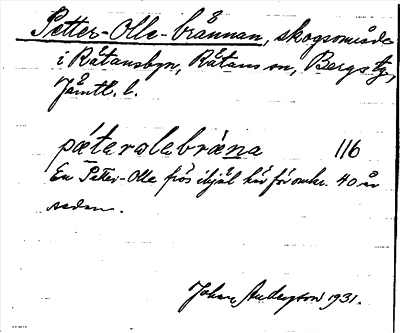 Petter-Olle-brännan, skogsområde
i Råtansbyn, Råtans sn, Bergs tg,
Jämtl. l.
pæterolebræna 116
En Petter-Olle frös ihjäl här för omkr. 40 år
sedan.
Johan Anderston 1931.